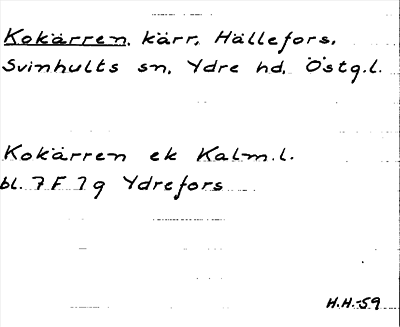 Kokärren, kärr, Hällefors,
Svinhults sn, Ydre hd, Östg.l.
Kokärren ek Kalm.l.
bl. 7 F 7 g Ydrefors
H.H.-59